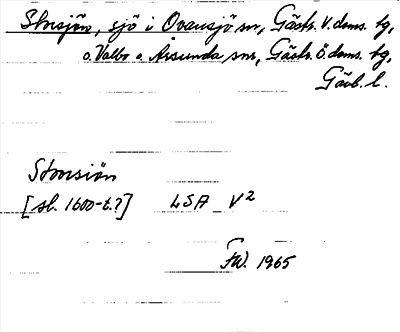 Storsjön, sjö i Ovansjö sn, Gästr. V. doms. tg,
o. Valbo o. Årsunda snr, Gästr. Ö. doms. tg,
Gävb. l.
Storsiön
[sl. 1600-t.?] LSA V²
FW. 1965